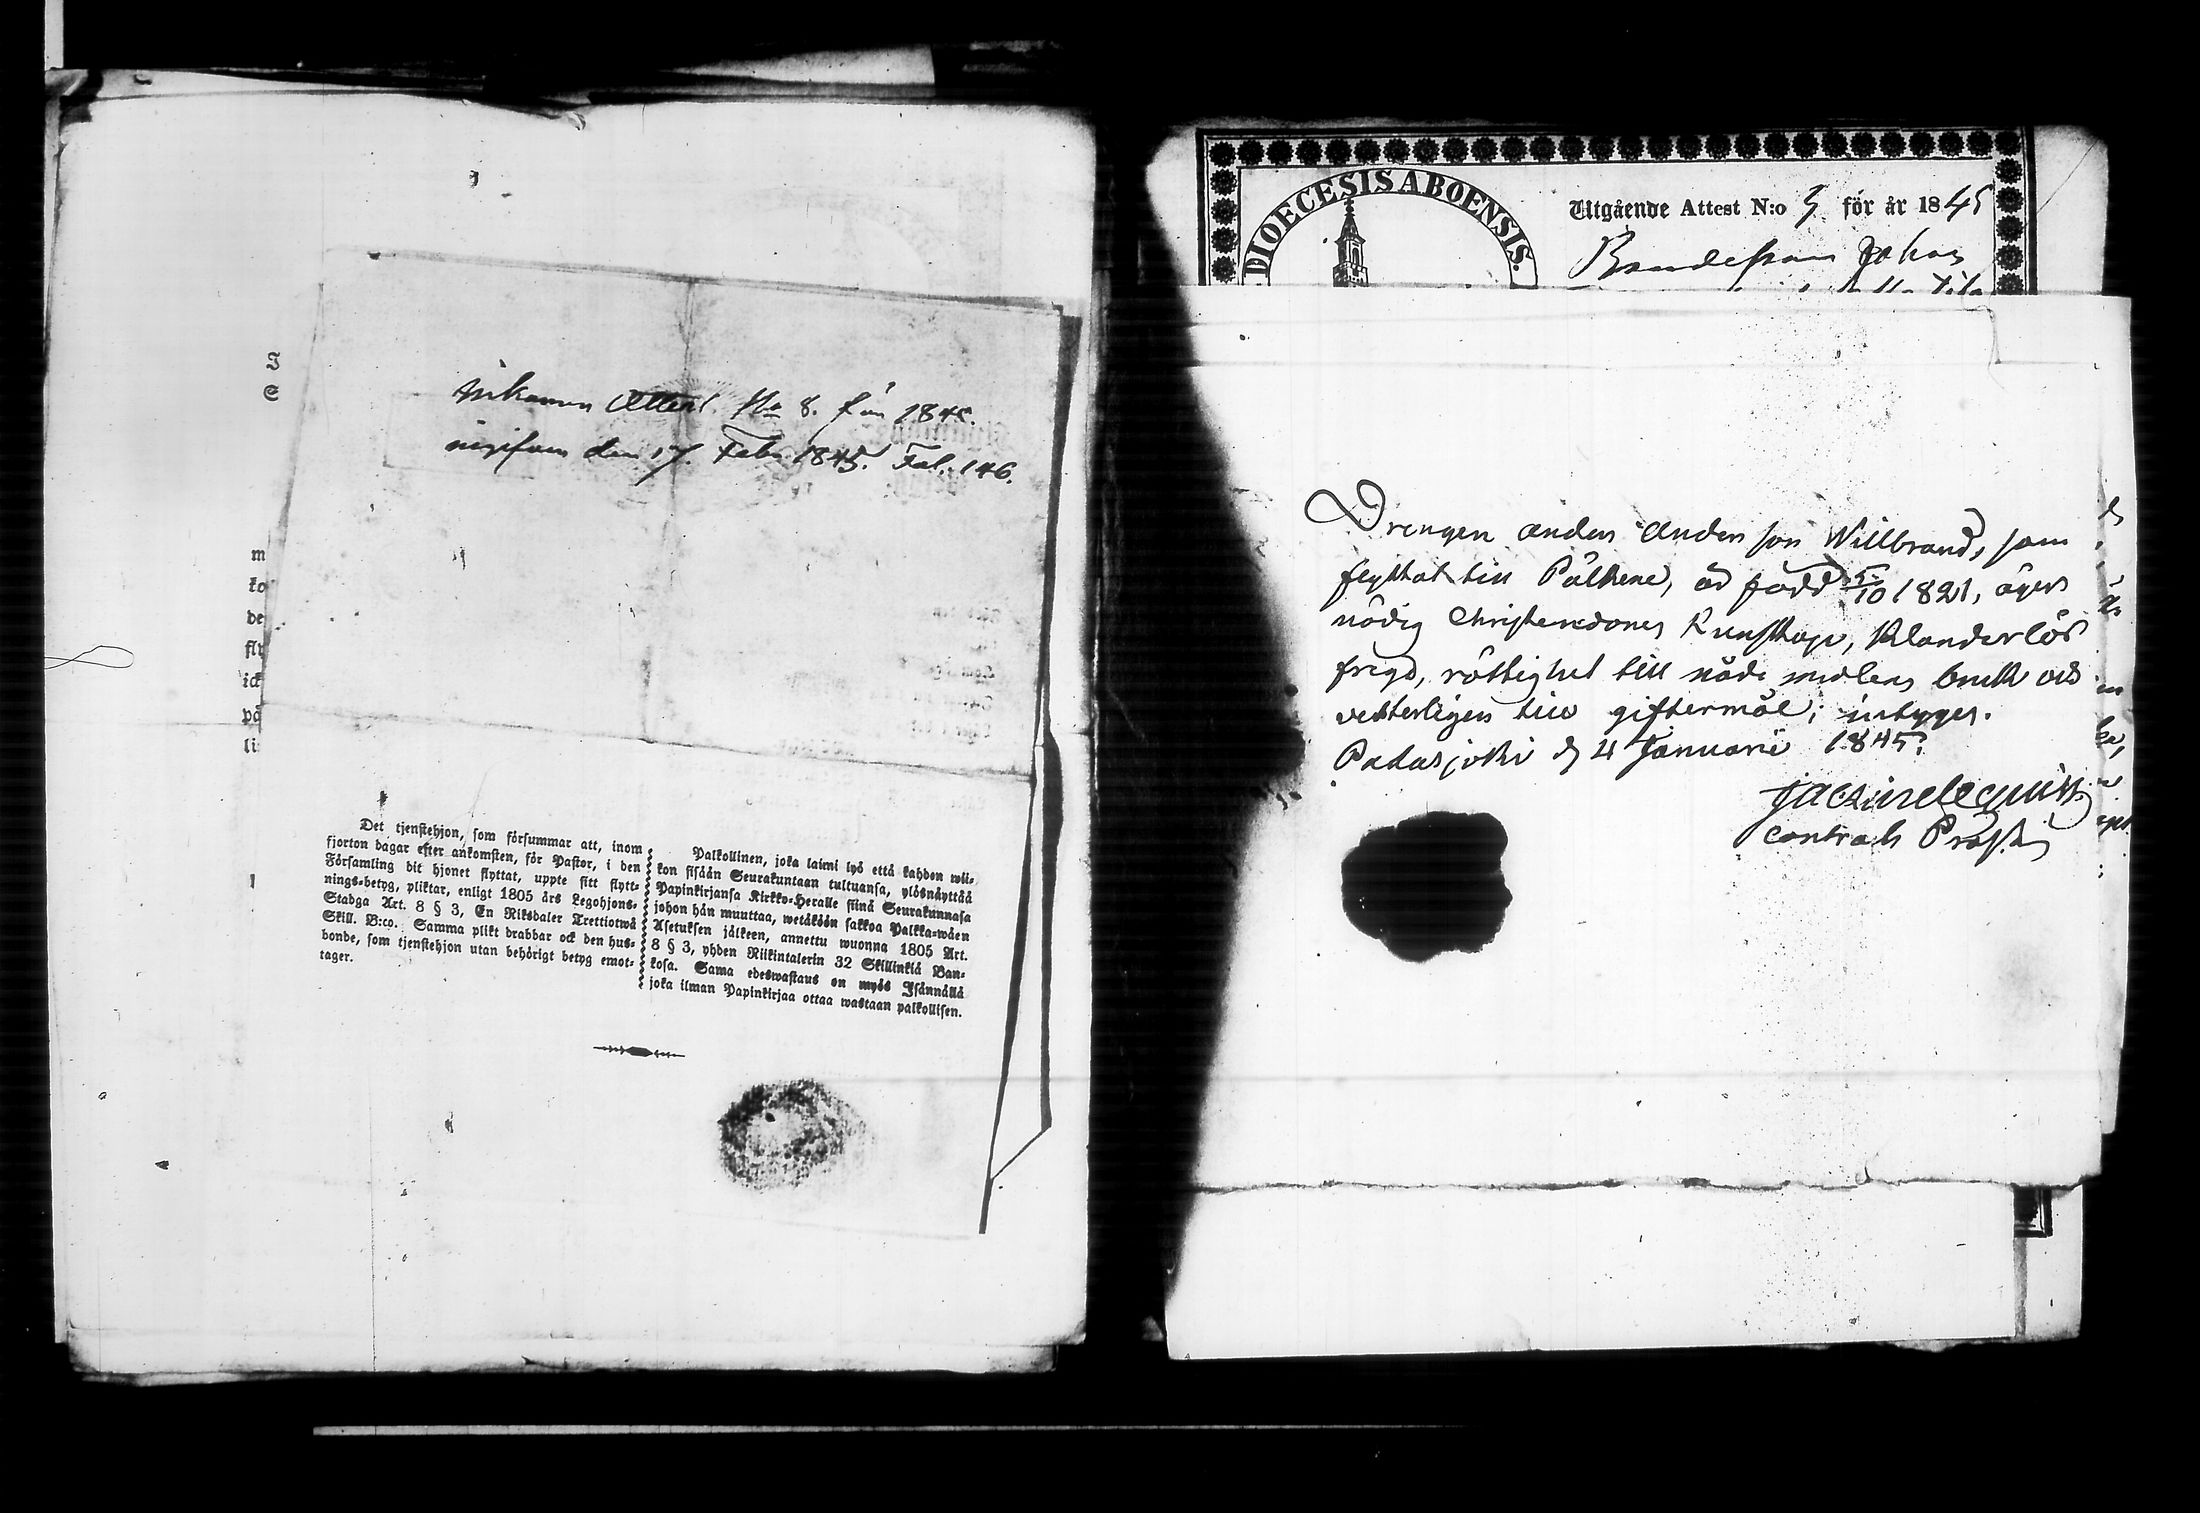 Ankommen Attest. No 8. för 1845.
ingifven den 17. Febr. 1845. Fol. 146.
I
S
m
ko
de
fly
ick
på
li
Det tjenstehjon, som försummar att, inom
fjorton dagar efter ankomsten, för Pastor, i den
Församling dit hjonet flyttat, uppte sitt flytt-
nings-betyg, pliktar, enligt 1805 års Legohjons-
Stadga Art. 8 § 3, En Riksdaler Trettiotwå
Skill. B:co. Samma plikt drabbar ock den hus-
bonde, som tjenstehjon utan behörigt betyg emot-
tager.
Palkollinen, joka laimi lyö että kahden wii-
kon sisään Seurakuntaan tultuansa, ylösnäyttää
Papinkirjansa Kirkko-Heralle siinä Seurakunnasa
johon hän muuttaa, wetäköön sakkoa Palkka-wäen
Asetuksen jälkeen, annettu wuonna 1805 Art.
8 § 3, yhden Riikintalerin 32 Skillinkiä Ban-
kosa. Sama edeswastaus on myös Isännällä
joka ilman Papinkirjaa ottaa wastaan palkollisen.
DIOECESIS ABOENSIS.
Utgående Attest N:o 5 för år 1845
Johan
Drengen Anders Anders son Willbrand, som
flyttat till Pälkene, är född 5/10 1821, äger
nödig Christendoms Kunskap, Klanderlös
frejd, rättighet till nåde medlens bruk och
veterligen till giftermål; intygar.
Padasjoki d 4 Januarii 1845.
contracts Prost